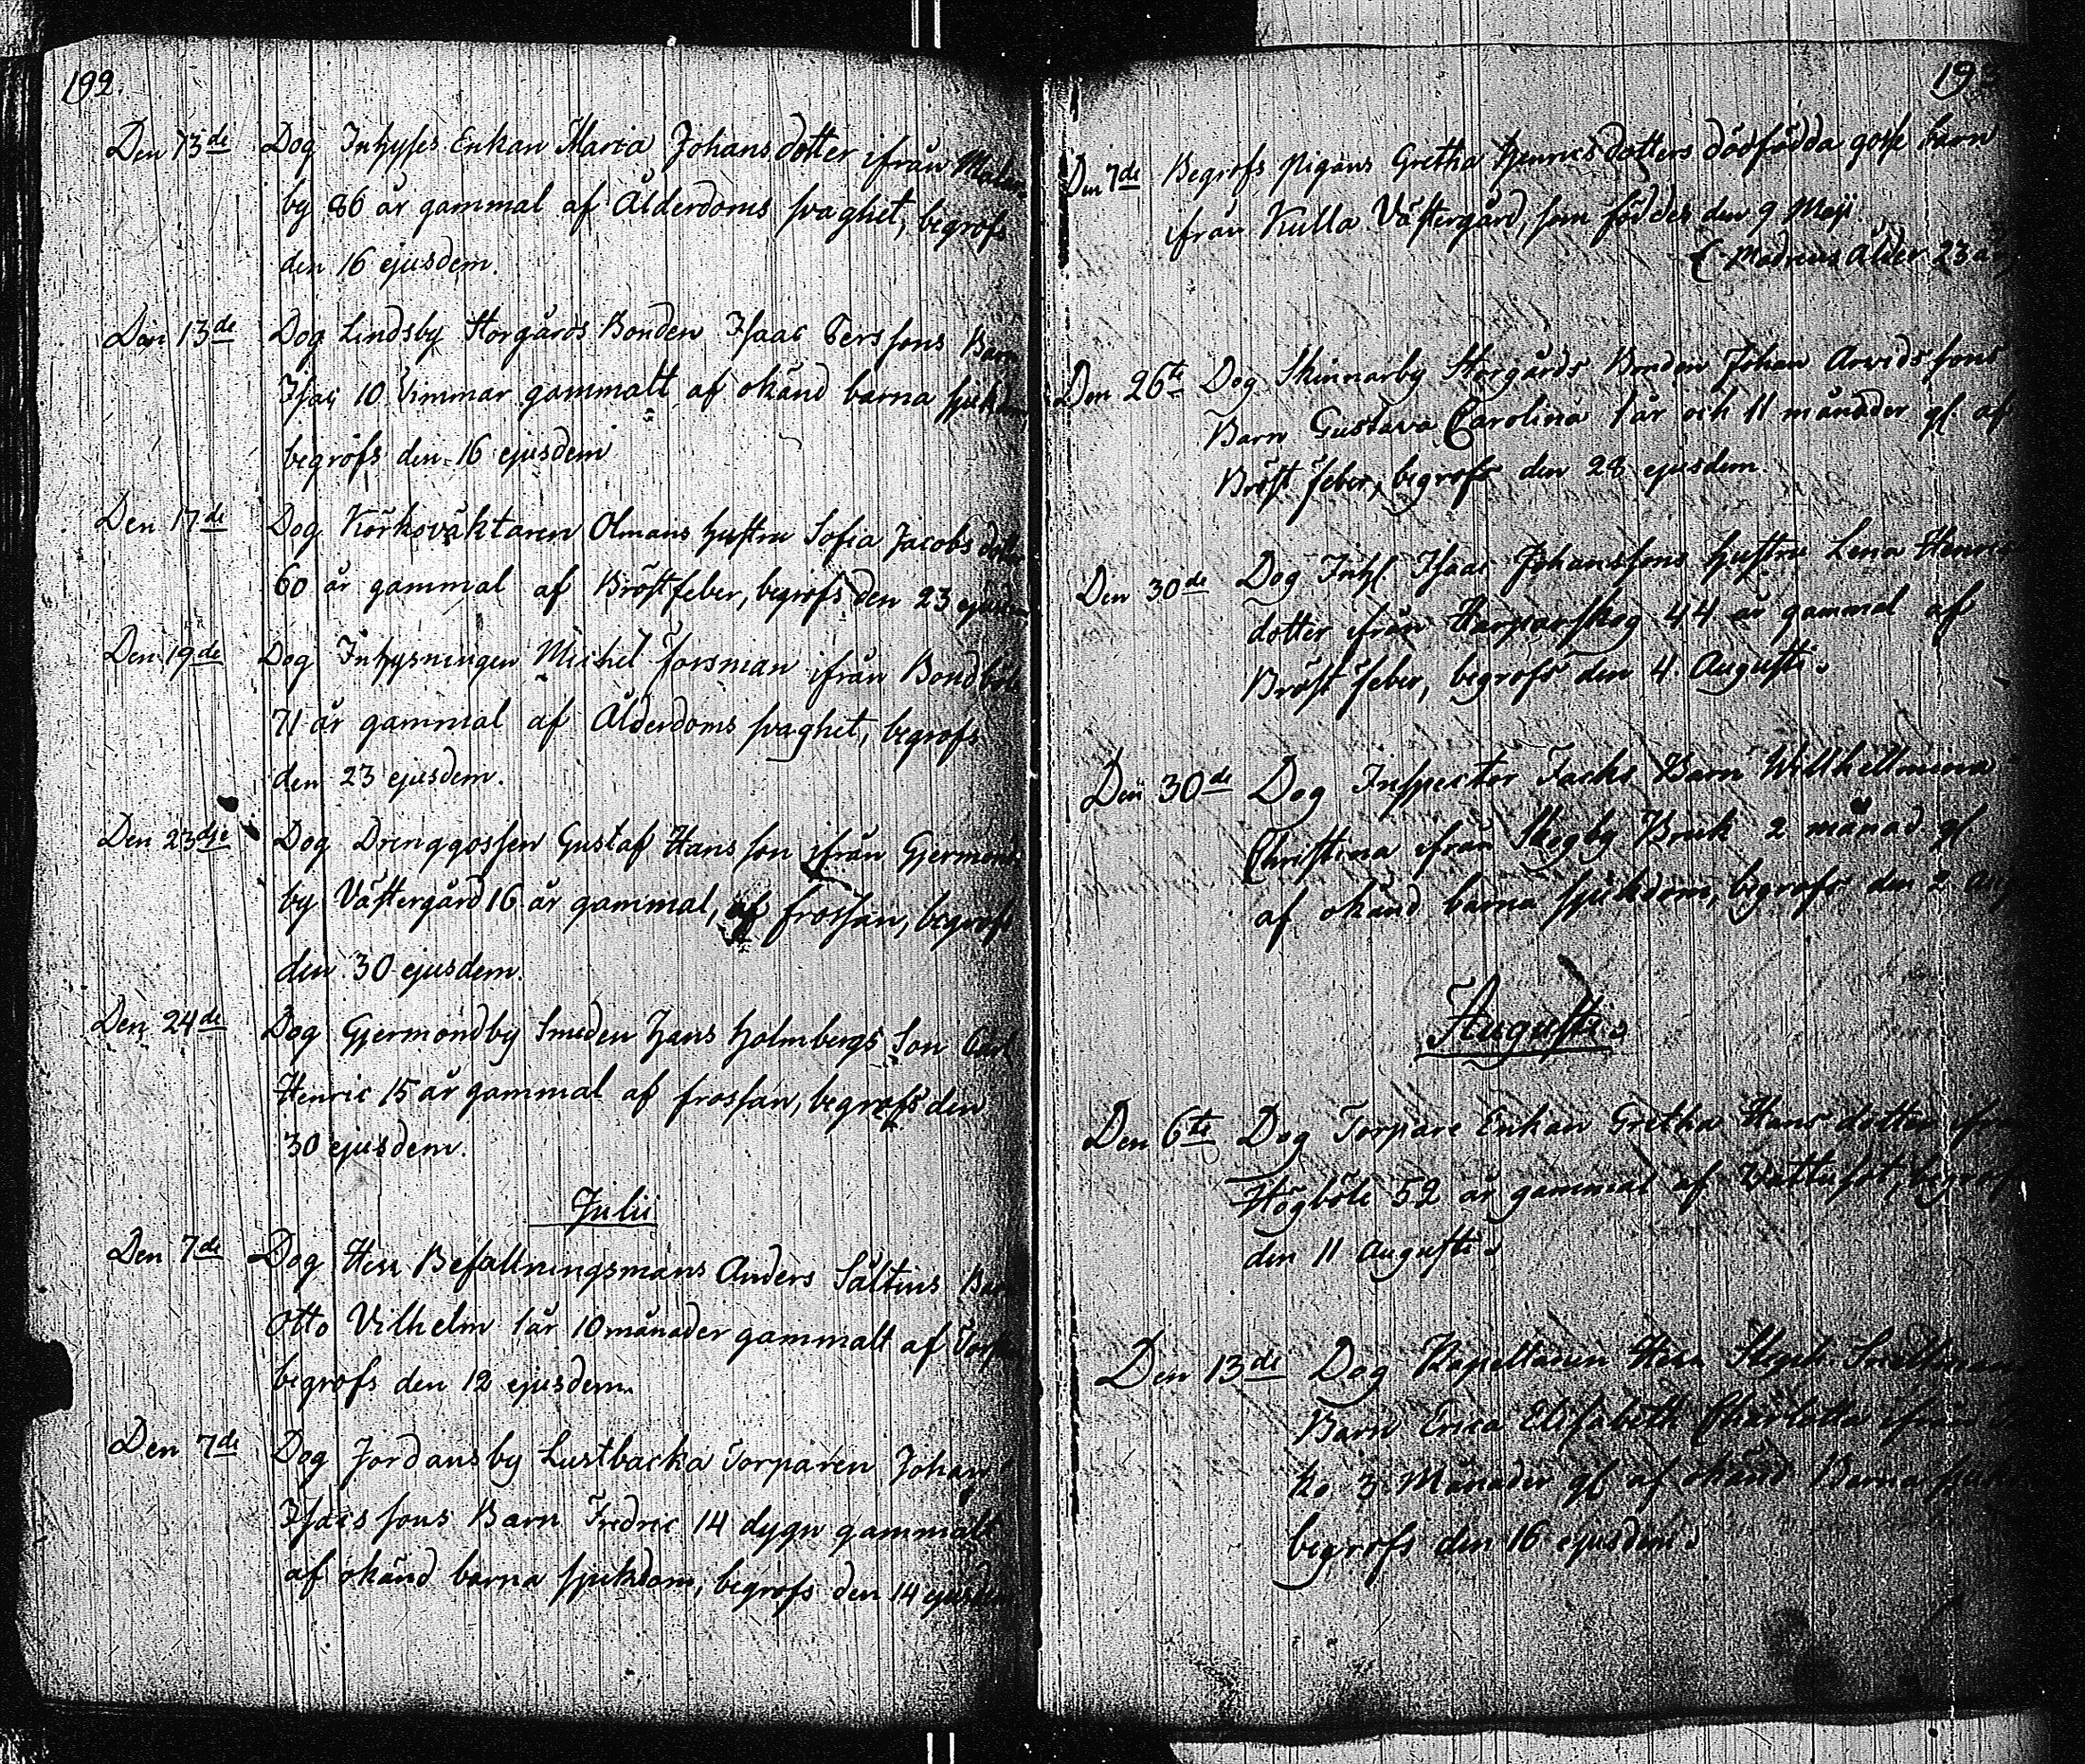 192.
Den 13de Dog Inhyses Enkan Maria Johans dotter ifrån Malm
by 86 år gammal af Ålderdoms svaghet, begrofs
den 16 ejusdem.
Den 13de Dog Lindsby Storgårds Bonden Isaac Pers sons Barn
Isac 10 timmar gammalt af okänd barna sjukdom
begrofs den 16 ejusdem
Den 17de Dog Körkoväktaren Olmans hustru Sofia Jacobs dotter
60 år gammal af Bröstfeber, begrofs den 23 ejusdem
Den 19de Dog Inhysningen Michel Forsman ifrån Bondböle
71 år gammal af Ålderdoms svaghet, begrofs
den 23 ejusdem.
Den 23dje Dog Drenggossen Gustaf Hans son ifrån Gjermond
by Västergård 16 år gammal, af frossan, begrofs
den 30 ejusdem.
Den 24de Dog Gjermondby Smeden Hans Holmbergs Son Carl
Henric 15 år gammal af frossan, begrofs den
30 ejusdem.
Julii
Den 7de Dog Herr Befallningsmans Anders Sältins Barn
Otto Vilhelm 1 år 10 månader gammalt af
begrofs den 12 ejusdem.
Den 7de Dog Jordansby Lustbacka Torparen Johan
Isacs sons Barn Fredric 14 dygn gammalt
af okänd barna sjukdom, begrofs den 14 ejusdem
193
Den 7de Begrofs Pigans Gretha Henrics dotters dödfödda gosse barn
ifrån Kulla Västergård, som föddes den 9 Maji
(Modrens Ålder 23 år)
Den 26te Dog Skinnarby Storgårds Bonden Johan Arvids sons
Barn Gustava Carolina 1 år och 11 månader gl af
Bröst feber, begrofs den 28 ejusdem.
Den 30de Dog Inhs Isaac Johanssons hustru Lena Henrics
dotter ifrån Harparskog 44 år gammal af
Bröst feber, begrofs den 4. Augusti.
Den 30de Dog Inspector Facks Barn Wilhellmina
Christina ifrån Skogby Bruk 2 månad gl
af okänd barna sjukdom, begrofs den 2 Aug
Augusti.
Den 6te Dog Torpare Enkan Gretha Hans dotter ifrån
Högböle 52 år gammal af Vattusot, begrofs
den 11 Augusti.
Den 13de Dog Kapellanen Herr Snellman
Barn Erica Elisabeth Charlotta ifrån
3 Månader gl af okänd Barna sjukdom
begrofs den 16 ejusdem.